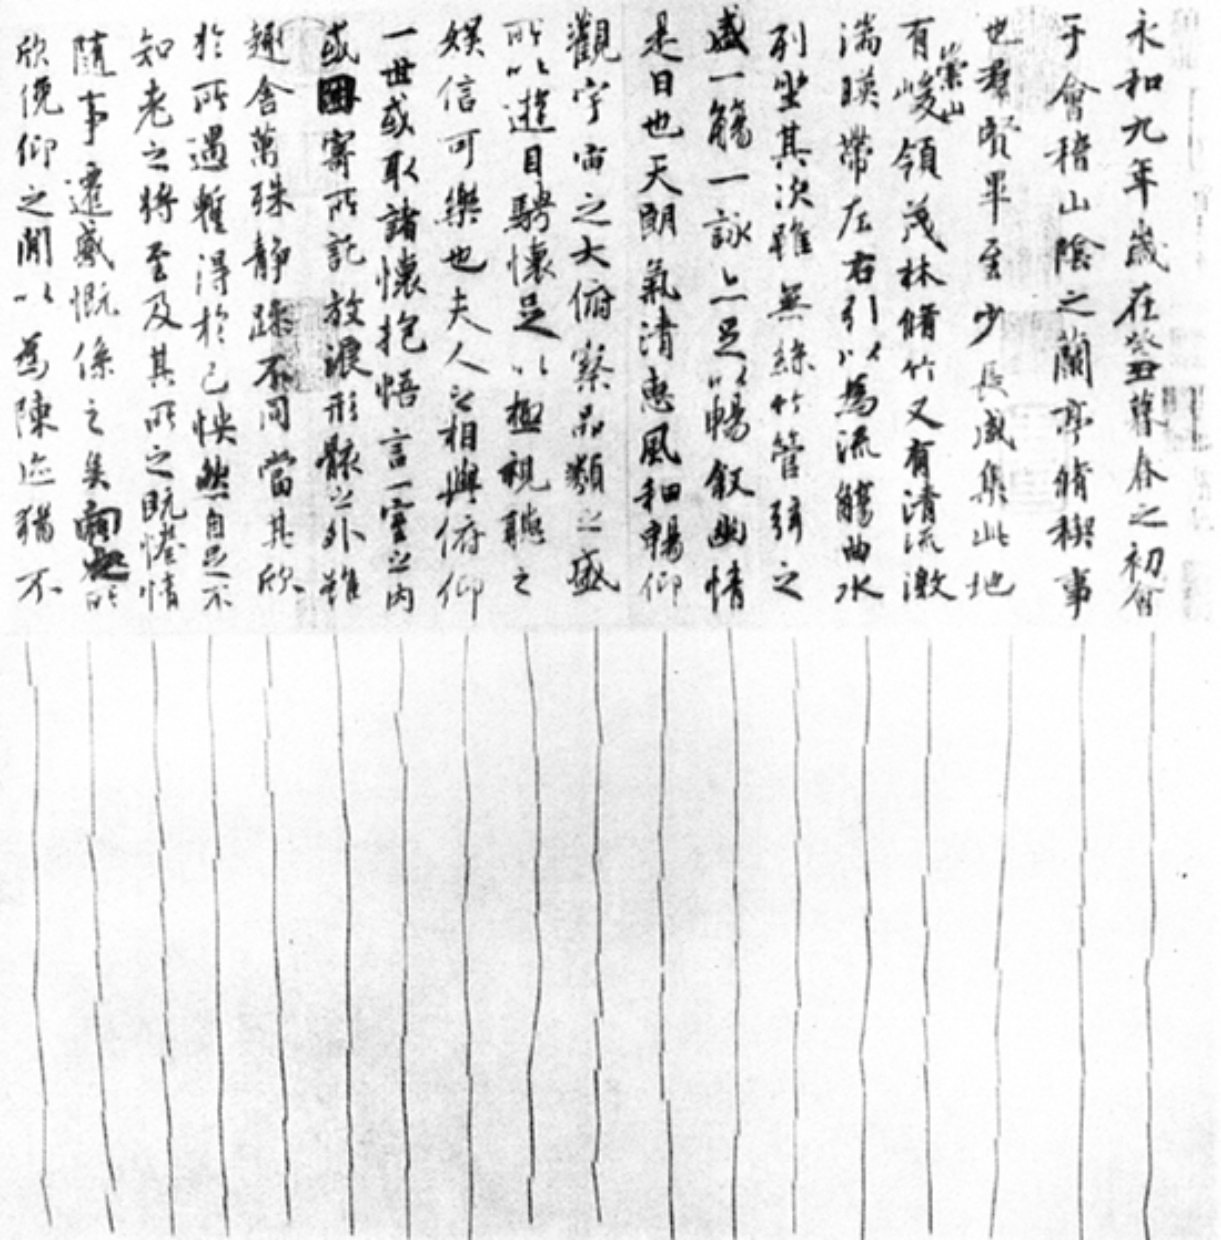 永和九年歲在癸丑暮春之初會
于會稽山陰之蘭亭脩稧事
也羣賢畢至少長咸集此地
有崇山峻領茂林脩竹又有清流激
湍暎帶左右引以為流觴曲水
列坐其次雖無絲竹管弦之
盛一觴一詠亦足以暢叙幽情
是日也天朗氣清惠風和暢仰
觀宇宙之大俯察品類之盛
所以遊目騁懷足以極視聽之
娛信可樂也夫人之相與俯仰
一世或取諸懷抱悟言一室之内
或因寄所託放浪形骸之外雖
趣舍萬殊靜躁不同當其欣
於所遇暫得於己怏然自足不
知老之將至及其所之既惓情
隨事遷感慨係之矣向之所
欣俛仰之閒以為陳迹猶不